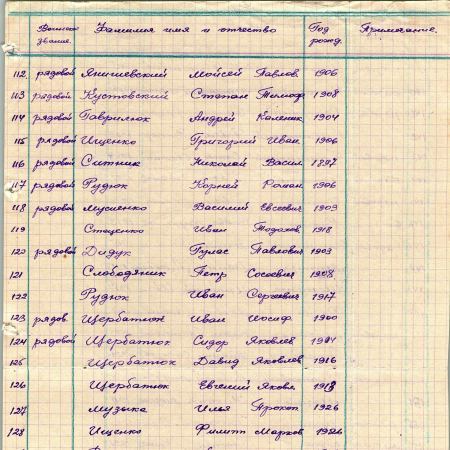 Воинское звание. Фамилия имя и отчество Год рожд. Примечание.
112 рядовой Янишевский Мойсей Павлов 1906
113 рядовой Кустовский Степан Тимоф 1908
114 рядовой Гаврилюк Андрей Каленик 1904
115 рядовой Ищенко Григорий Иван. 1906
116 рядовой Ситник Николай Васил 1897
117 рядовой Рудюк Корней Роман 1906
118 рядовой Мусиенко Василий Евсеевич 1903
119 Стаценко Иван 1918
120 рядовой Дидук Павлович 1903
121 Слободяник Петр 1908
122 Рудюк Иван Сергеевич 1917
123 рядов. Щербатюк Иван Иосиф 1900
124 рядовой Щербатюк Сидор Яковлев
125 Щербатюк Давид Яковлев 1916
126 Щербатюк Евгений Яковл 1918
127 Музыка Илья Прокоп 1926
128 Ищенко Филипп Марков 1926